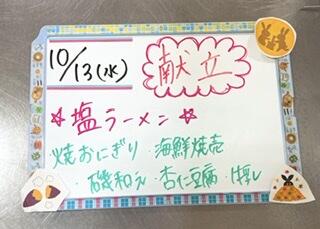 10/13(水)
献立
☆塩ラーメン☆
焼おにぎり・海鮮焼売
・磯和え・杏仁豆腐・